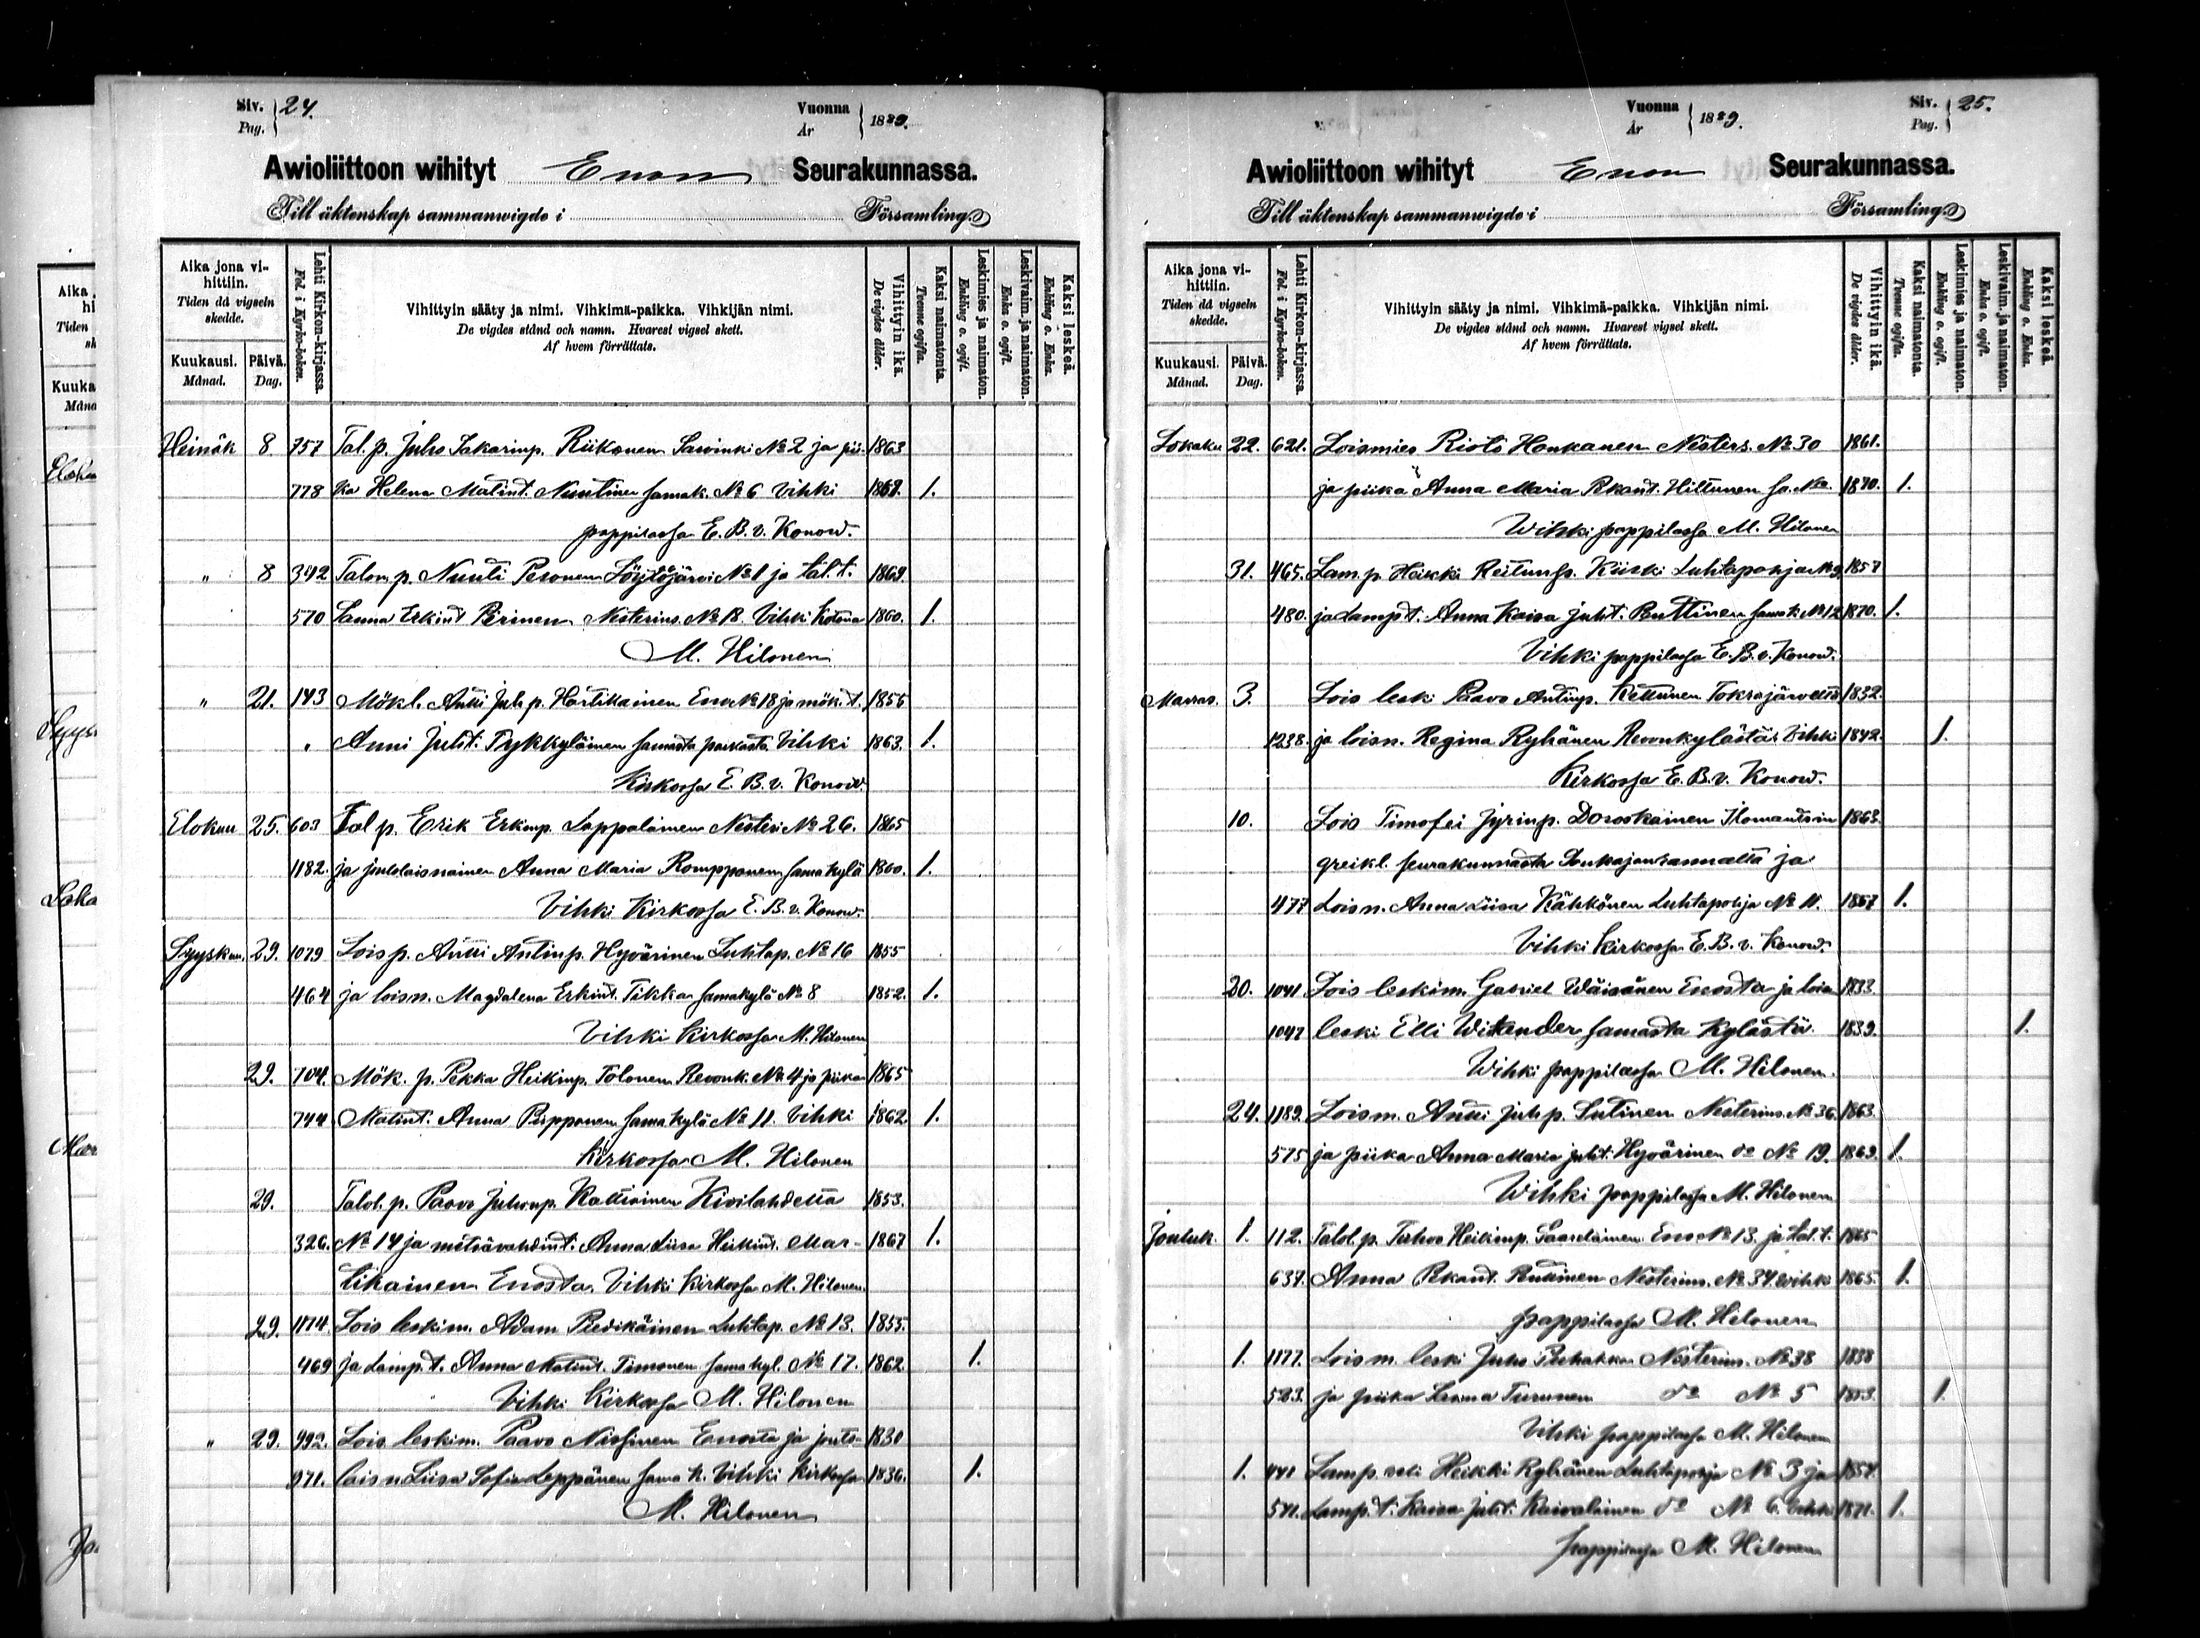 Siv. Pag. 24.
Vuonna År 1889.
Awioliittoon wihityt Enon Seurakunnassa.
Till äktenskap sammanwigde i Församling.
Aika jona vihittiin. Tiden då vigseln skedde.
Kuukausi. Månad.
Päivä. Dag.
Lehti Kirkon-kirjassa. Fol. i Kyrko-boken.
Vihittyin sääty ja nimi. Vihkimä-paikka. Vihkijän nimi.
De vigdes stånd och namn. Hvarest vigsel skett.
Af hvem förrättats.
Vihittyin ikä. De vigdes ålder.
Kaksi naimatonta. Tvenne ogifta.
Leskimies ja naimaton. Enkling o. ogift.
Leskivaim. ja naimaton. Enka o. ogift.
Kaksi leskeä. Enkling o. Enka.
Heinäk 8 757 Tal. p. Juho Sakarinp. Riikonen Sarvinki № 2 ja pii- 1863
778 ka Helena Matint. Nuutinen samak. № 6 Vihki 1868. 1.
pappilassa E. B. v. Konow.
" 8 342 Talon p. Nuuti Pesonen Löytöjärvi № 1 ja tal. t. 1869
570 Sanna Erkint Piirinen Nesterins. № 18. Vihki kotona 1860. 1.
M. Hilonen
" 21. 143 Mökl. Antti Juh p. Hartikainen Eno № 18 ja mök. t. 1856
" Anni Juhst. Tykkyläinen samasta paikasta Vihki 1863. 1.
Kirkossa E. B. v. Konow
Elokuu 25. 603 Tal p. Erik Erkinp. Lappalainen Nesteri № 26. 1865
1182. ja joutolaisnainen Anna Maria Romppanen sama kylä 1860. 1.
Vihki Kirkossa E. B. v. Konow.
Syyskuu. 29. 1079 Lois p. Antti Antinp. Hyvärinen Luhtap. № 16 1855
464 ja loisn. Magdalena Erkint. Tikka samakylä № 8 1852. 1.
Vihki Kirkossa M. Hilonen
29. 704. Mök. p. Pekka Heikinp. Tolonen Revonk. № 4 ja piika 1865
744 Matint. Anna Piipponen sama kylä № 11. Vihki 1862. 1.
Kirkossa M. Hilonen
29. Talol. p. Paavo Juhonp. Kattiainen Kivilahdelta 1853.
326. № 14 ja metsävahdint. Anna Liisa Heikint. Mar- 1867 1.
tikainen Enosta. Vihki Kirkossa M. Hilonen.
29. 1174. Lois leskim. Adam Piedikäinen Luhtap. № 13. 1855.
469 ja Lamp. t. Anna Matint. Timonen sama kyl. № 17. 1862. 1.
Vihki Kirkossa M. Hilonen
" 29. 992. Lois leskim. Paavo Nissinen Enosta ja jouto- 1830
971. lais n. Liisa Sofia Leppänen sama k. Vihki Kirkossa 1836. 1.
M. Hilonen
Siv. Pag. 25.
Vuonna År 1889.
Awioliittoon wihityt Enon Seurakunnassa.
Till äktenskap sammanwigde i Församling.
Aika jona vihittiin. Tiden då vigseln skedde.
Kuukausi. Månad.
Päivä. Dag.
Lehti Kirkon-kirjassa. Fol. i Kyrko-boken.
Vihittyin sääty ja nimi. Vihkimä-paikka. Vihkijän nimi.
De vigdes stånd och namn. Hvarest vigsel skett.
Af hvem förrättats.
Vihittyin ikä. De vigdes ålder.
Kaksi naimatonta. Tvenne ogifta.
Leskimies ja naimaton. Enkling o. ogift.
Leskivaim. ja naimaton. Enka o. ogift.
Kaksi leskeä. Enkling o. Enka.
Lokaku 22. 621. Loismies Risto Honkanen Nesters. № 30 1861.
ja piika Anna Maria Pekant. Hiltunen 1870. 1.
Wihki pappilassa M. Hilonen
31. 465. Lam. p. Heikki Kiiski Luhtapohja № 9 1857
480. ja Lamp t. Anna Kaisa Juht. Puttinen samak. № 12 1870. 1.
Vihki pappilassa E. B. v. Konow.
Marras. 3. Lois leski Paavo Antinp. Kettunen Tokrajärveltä 1832.
1238. ja loisn. Regina Ryhänen Revonkylästä. Vihki 1842. 1.
Kirkossa E. B. v. Konow.
10. Lois Timofei Jyrinp. Doroskainen Ilomantsin 1863.
greikl. seurakunnasta Sonkajanrannalta ja
477 Lois n. Anna Liisa Kähkönen Luhtapohja № 11. 1867 1.
Vihki Kirkossa E. B. v. Konow.
20. 1041. Lois leskim. Gabriel Wäisänen Enosta ja lois 1833.
1047 leski Elli Witander samasta kylästä 1839. 1.
Wihki pappilassa M. Hilonen.
24. 1189. Lois m. Antti Juh p. Sutinen Nesterins. № 36. 1863.
575 ja piika Anna Maria Juht. Hyvärinen d:o № 19. 1869. 1.
Wihki pappilassa M. Hilonen
Jouluk. 1. 112. Talol. p. Juhos Heikinp. Saarelainen Eno № 13. ja tal. t. 1865
637. Anna Pekant. Nesterins. № 34 wihki 1865. 1.
pappilassa M. Hilonen
1. 1177. Lois m. leski Juho Puhakka Nesterins. № 38 1838
523. ja piika Sanna Turunen d:o № 5 1853. 1.
Vihki pappilassa M. Hilonen
1. 441 Lamp. Heikki Ryhänen Luhtapohja № 3 ja 1854.
571. Lamp. t. Kaisa Juht. Kaivolainen d:o № 6. Vihki 1871. 1.
pappilassa M. Hilonen
Aika
Tiden
Kuuka
Måna
Eloku
Syys
Loka
Mar
Jou